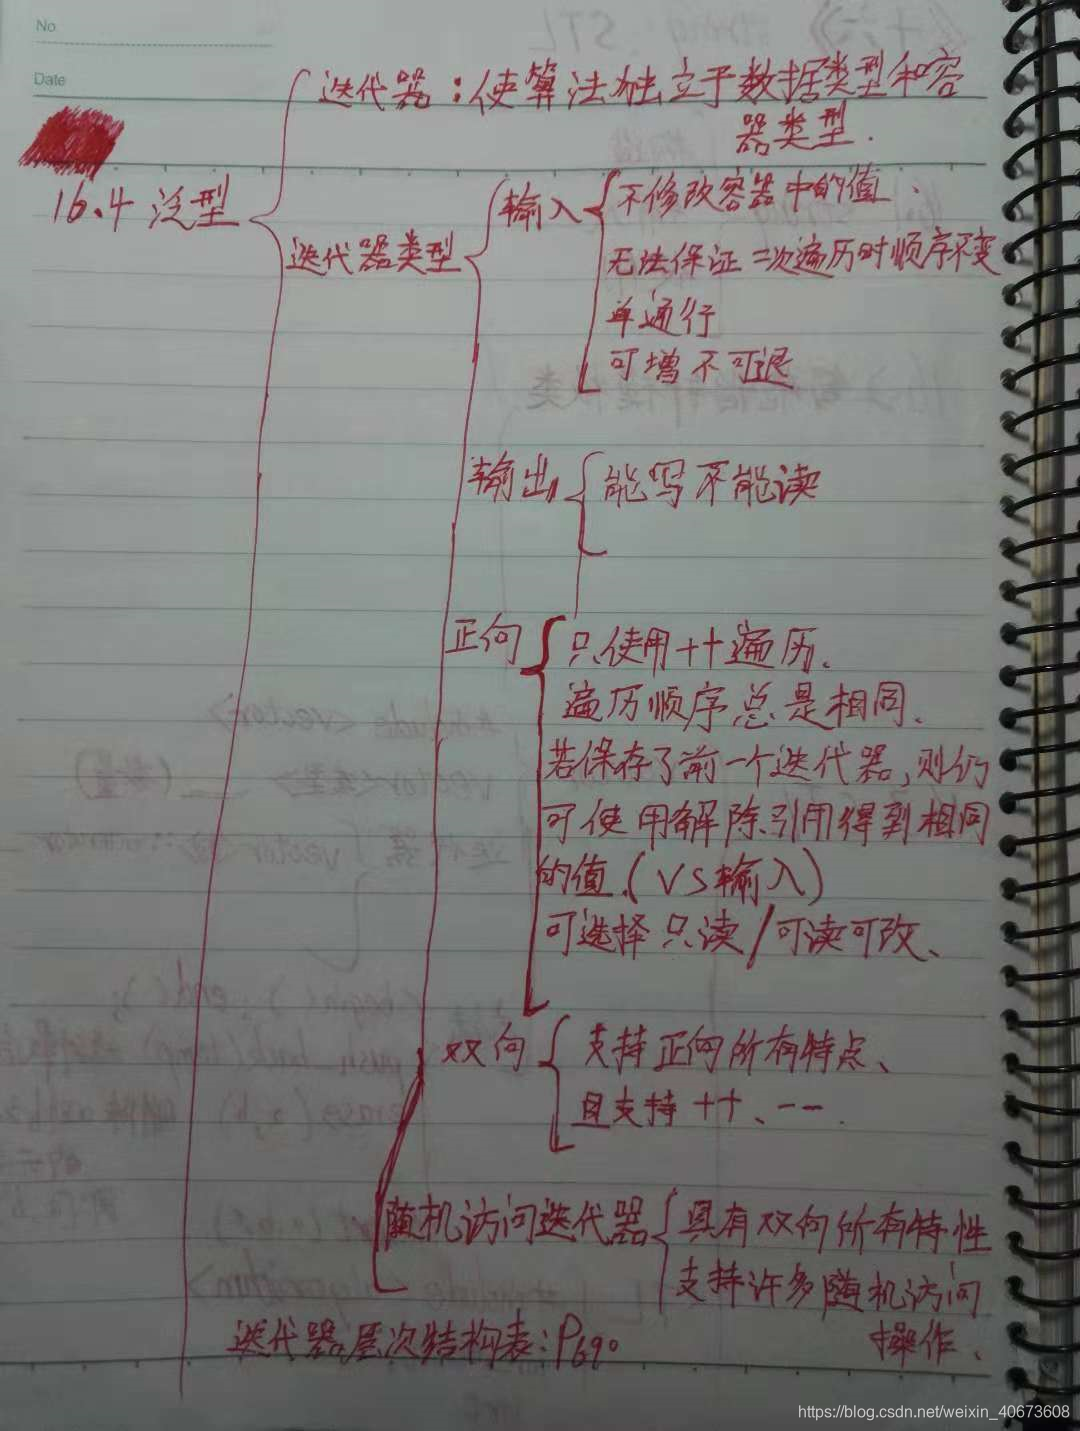 No
Date
迭代器：使算法独立于数据类型和容
器类型.
16.4 泛型
迭代器类型
输入
不修改容器中的值.
无法保证二次遍历时顺序不变
单通行
可增不可退
输出
能写不能读
正向
只使用++遍历.
遍历顺序总是相同.
若保存了前一个迭代器,则仍
可使用解除引用得到相同
的值.(VS输入)
可选择只读/可读可改、
双向
支持正向所有特点、
且支持++、--.
随机访问迭代器
具有双向所有特性
支持许多随机访问
操作、
迭代器层次结构表:P690
https://blog.csdn.net/weixin_40673608